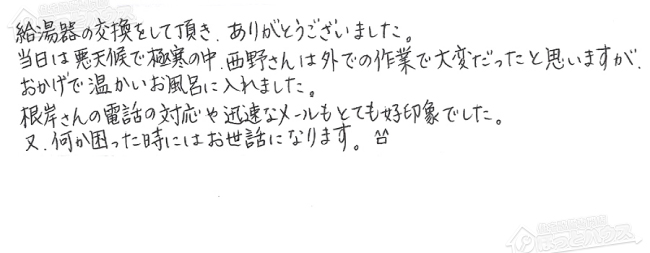 給湯器の交換をして頂き、ありがとうございました。
当日は悪天候で極寒の中、西野さんは外での作業で大変だったと思いますが、
おかげで温かいお風呂に入れました。
根岸さんの電話の対応や迅速なメールもとても好印象でした。
又、何か困った時にはお世話になります。^^